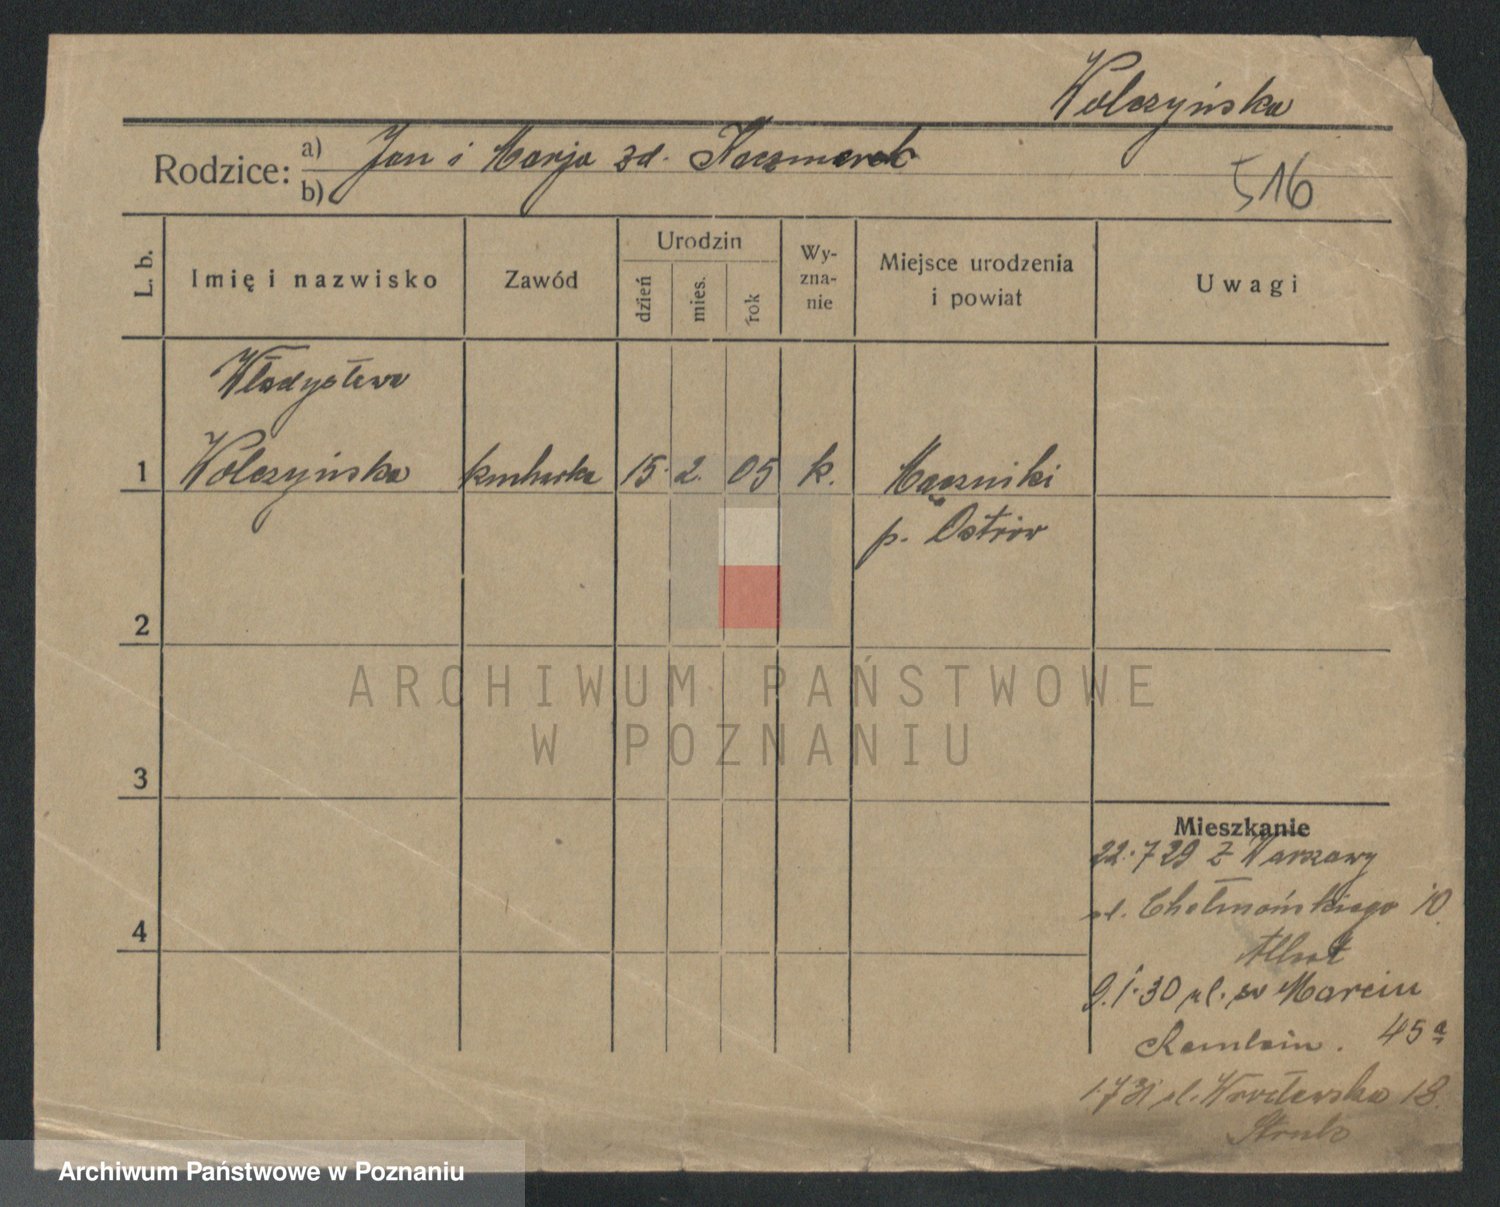 Wolczyńska
Rodzice: a) Jan i Marja zd. Kaczmarek
b)
516
L. b.
Imię i nazwisko
Zawód
Urodzin
dzień
mies.
rok
Wy-
zna-
nie
Miejsce urodzenia
i powiat
Uwagi
Władysława
1 Wolczyńska kucharka 15. 2. 05 k. Mączniki
p. Ostrów
2
3
4
ARCHIWUM PAŃSTWOWE
W POZNANIU
Mieszkanie
22.7 29 z Warszawy
ul. Chełmońskiego 10.
9.1.30 ul. św Marcin
45a
1.7 31 ul. Wrocławska 18.
Archiwum Państwowe w Poznaniu